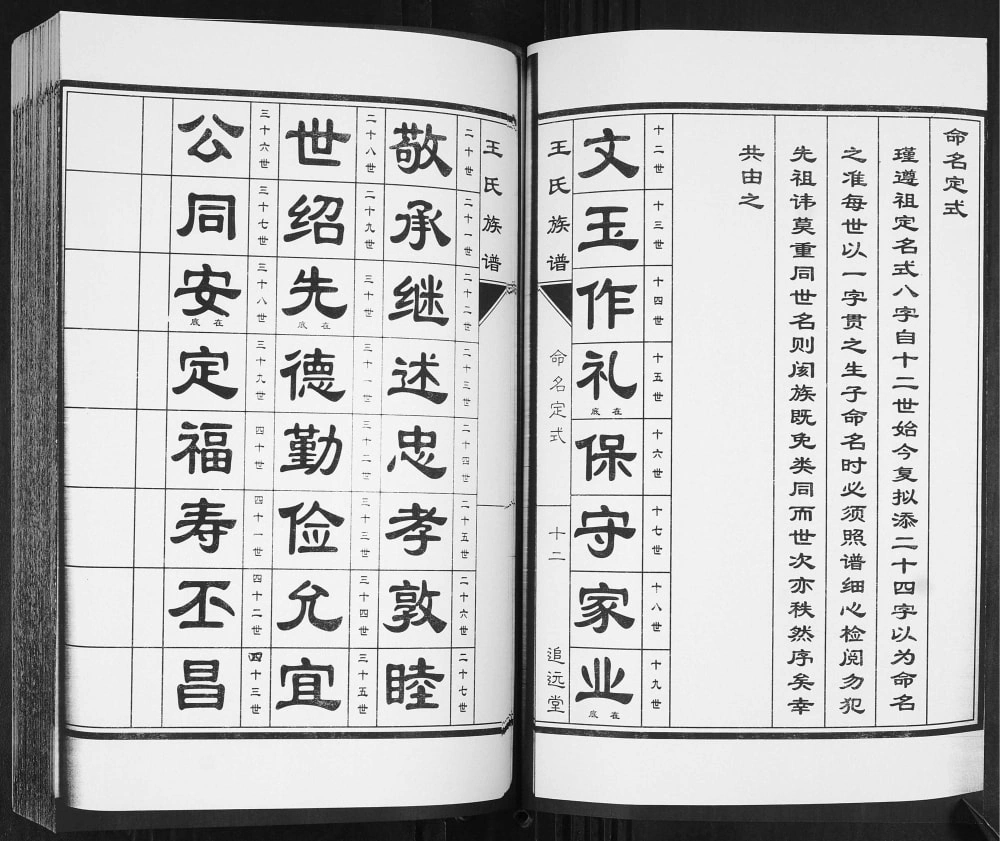 命名定式
瑾遵祖定名式八字自十二世始今复拟添二十四字以为命名
之准每世以一字贯之生子命名时必须照谱细心检阅勿犯
先祖讳莫重同世名则阂族既免类同而世次亦秩然序矣幸
共由之
十二世 文
十三世 玉
十四世 作
十五世 礼 在底
十六世 保
十七世 守
十八世 家
十九世 业 在底
王氏族谱
命名定式
十二
追远堂
王氏族谱
二十世 敬
二十一世 承
二十二世 继
二十三世 述
二十四世 忠
二十五世 孝
二十六世 敦
二十七世 睦
二十八世 世
二十九世 绍
三十世 先 在底
三十一世 德
三十二世 勤
三十三世 俭
三十四世 允
三十五世 宜
三十六世 公
三十七世 同
三十八世 安 在底
三十九世 定
四十世 福
四十一世 寿
四十二世 丕
四十三世 昌